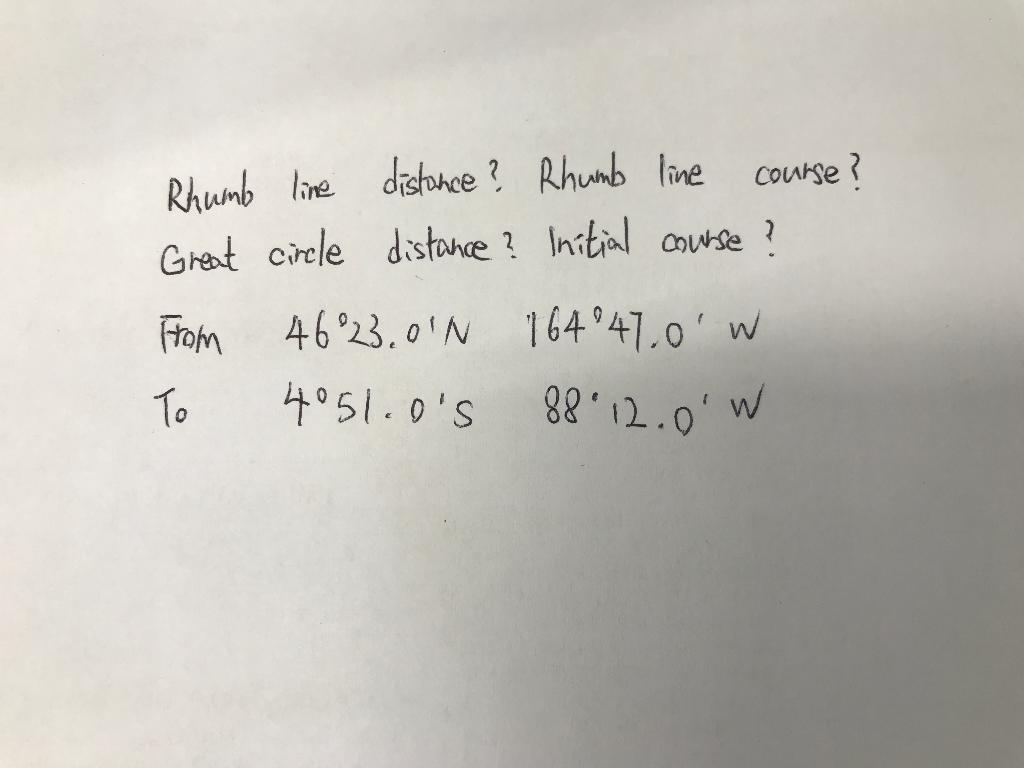 Rhumb line distance? Rhumb line course?
Great circle distance? Initial course?
From 46°23.0'N 164°47.0'W
To 4°51.0'S 88°12.0'W